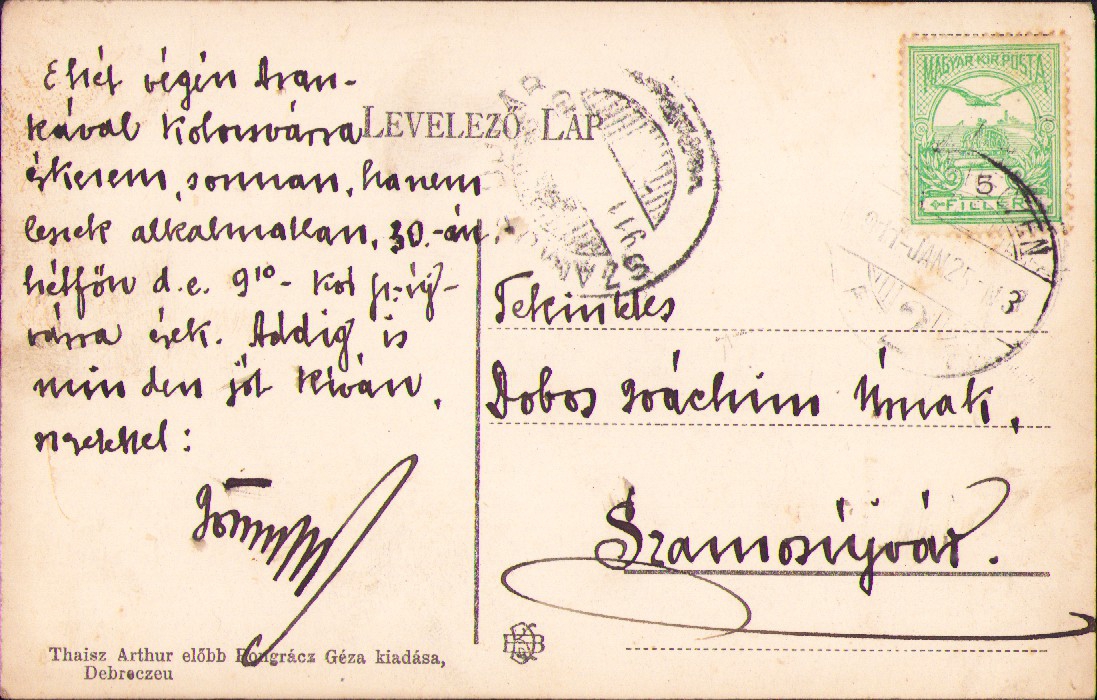 E hét végén Aran-
kával Kolozsvárra
érkezem, onnan, ha nem
leszek alkalmatlan, 30.-án
hétfőn d. e. 9¹⁰- kor
várra érek. Addig is
minden jót kíván,
szeretettel:
LEVELEZŐ LAP
MAGYAR KIR. POSTA
5
FILLÉR
SZAMOS
911
911 JAN 2
Tekintetes
Dobos Joáchim Úrnak,
Szamosújvár.
Thaisz Arthur előbb Pongrácz Géza kiadása,
Debreczeu